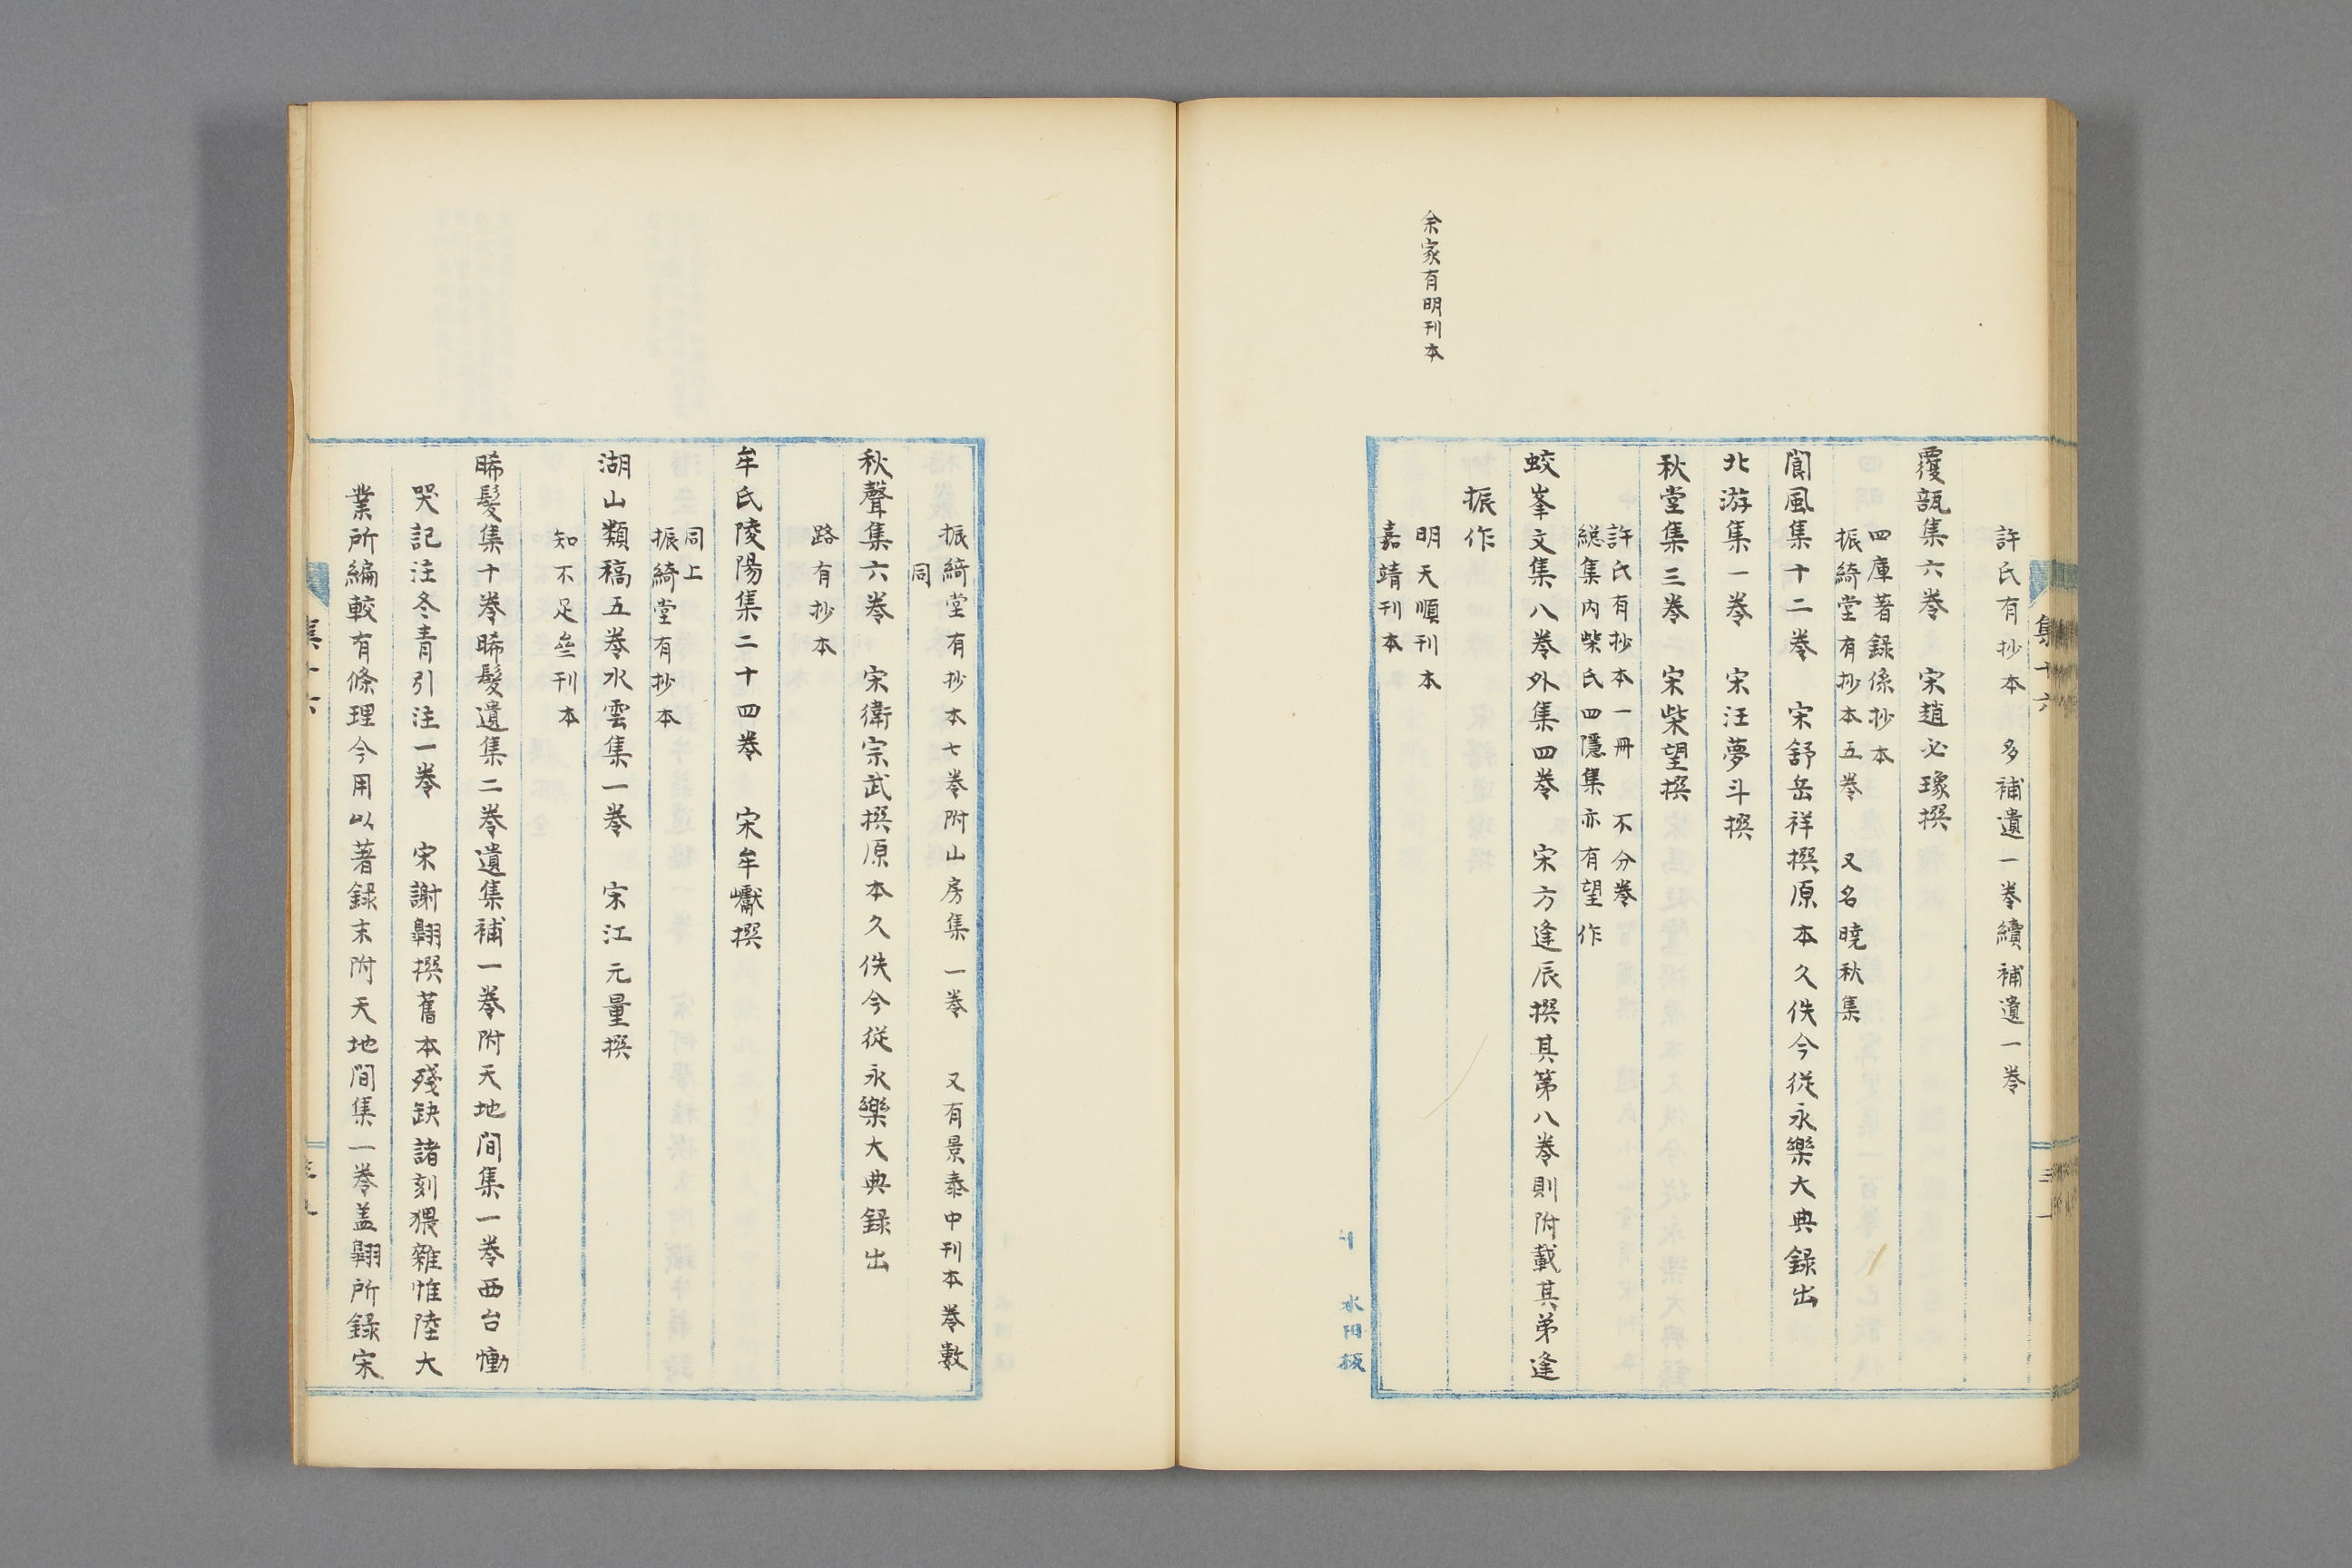 許氏有抄本　多補遺一卷續補遺一卷
覆瓿集六卷　宋趙必𤩪撰
四庫著録係抄本
振綺堂有抄本五卷　又名曉秋集
閬風集十二卷　宋舒岳祥撰原本久佚今從永樂大典録出
北游集一卷　宋汪夢斗撰
秋堂集三卷　宋柴望撰
許氏有抄本一冊　不分卷
総集内柴氏四隱集亦有望作
蛟峯文集八卷外集四卷　宋方逢辰撰其第八卷則附載其弟逢
振作
余家有明刊本
明天順刊本
嘉靖刊本
集十六
振綺堂有抄本七卷附山房集一卷　又有景泰中刊本卷數
同
秋聲集六卷　宋衛宗武撰原本久佚今從永樂大典録出
路有抄本
牟氏陵陽集二十四卷　宋牟巘撰
同上
振綺堂有抄本
湖山類稿五卷水雲集一卷　宋汪元量撰
知不足叁刊本
晞髮集十卷晞髮遺集二卷遺集補一卷附天地間集一卷西台慟
哭記注冬青引注一卷　宋謝翺撰舊本殘缺諸刻猥雜惟陸大
業所編較有條理今用以著録末附天地間集一卷盖翺所録宋